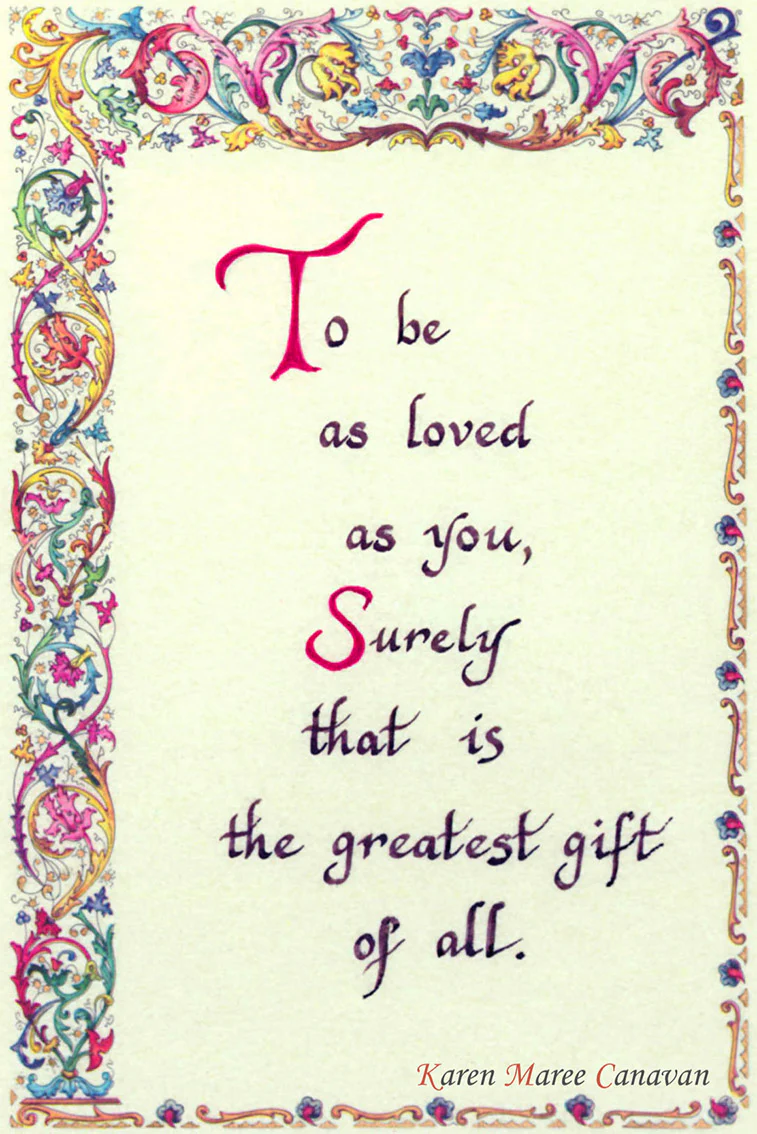 To be
as loved
as you,
Surely
that is
the greatest gift
of all.
Karen Maree Canavan